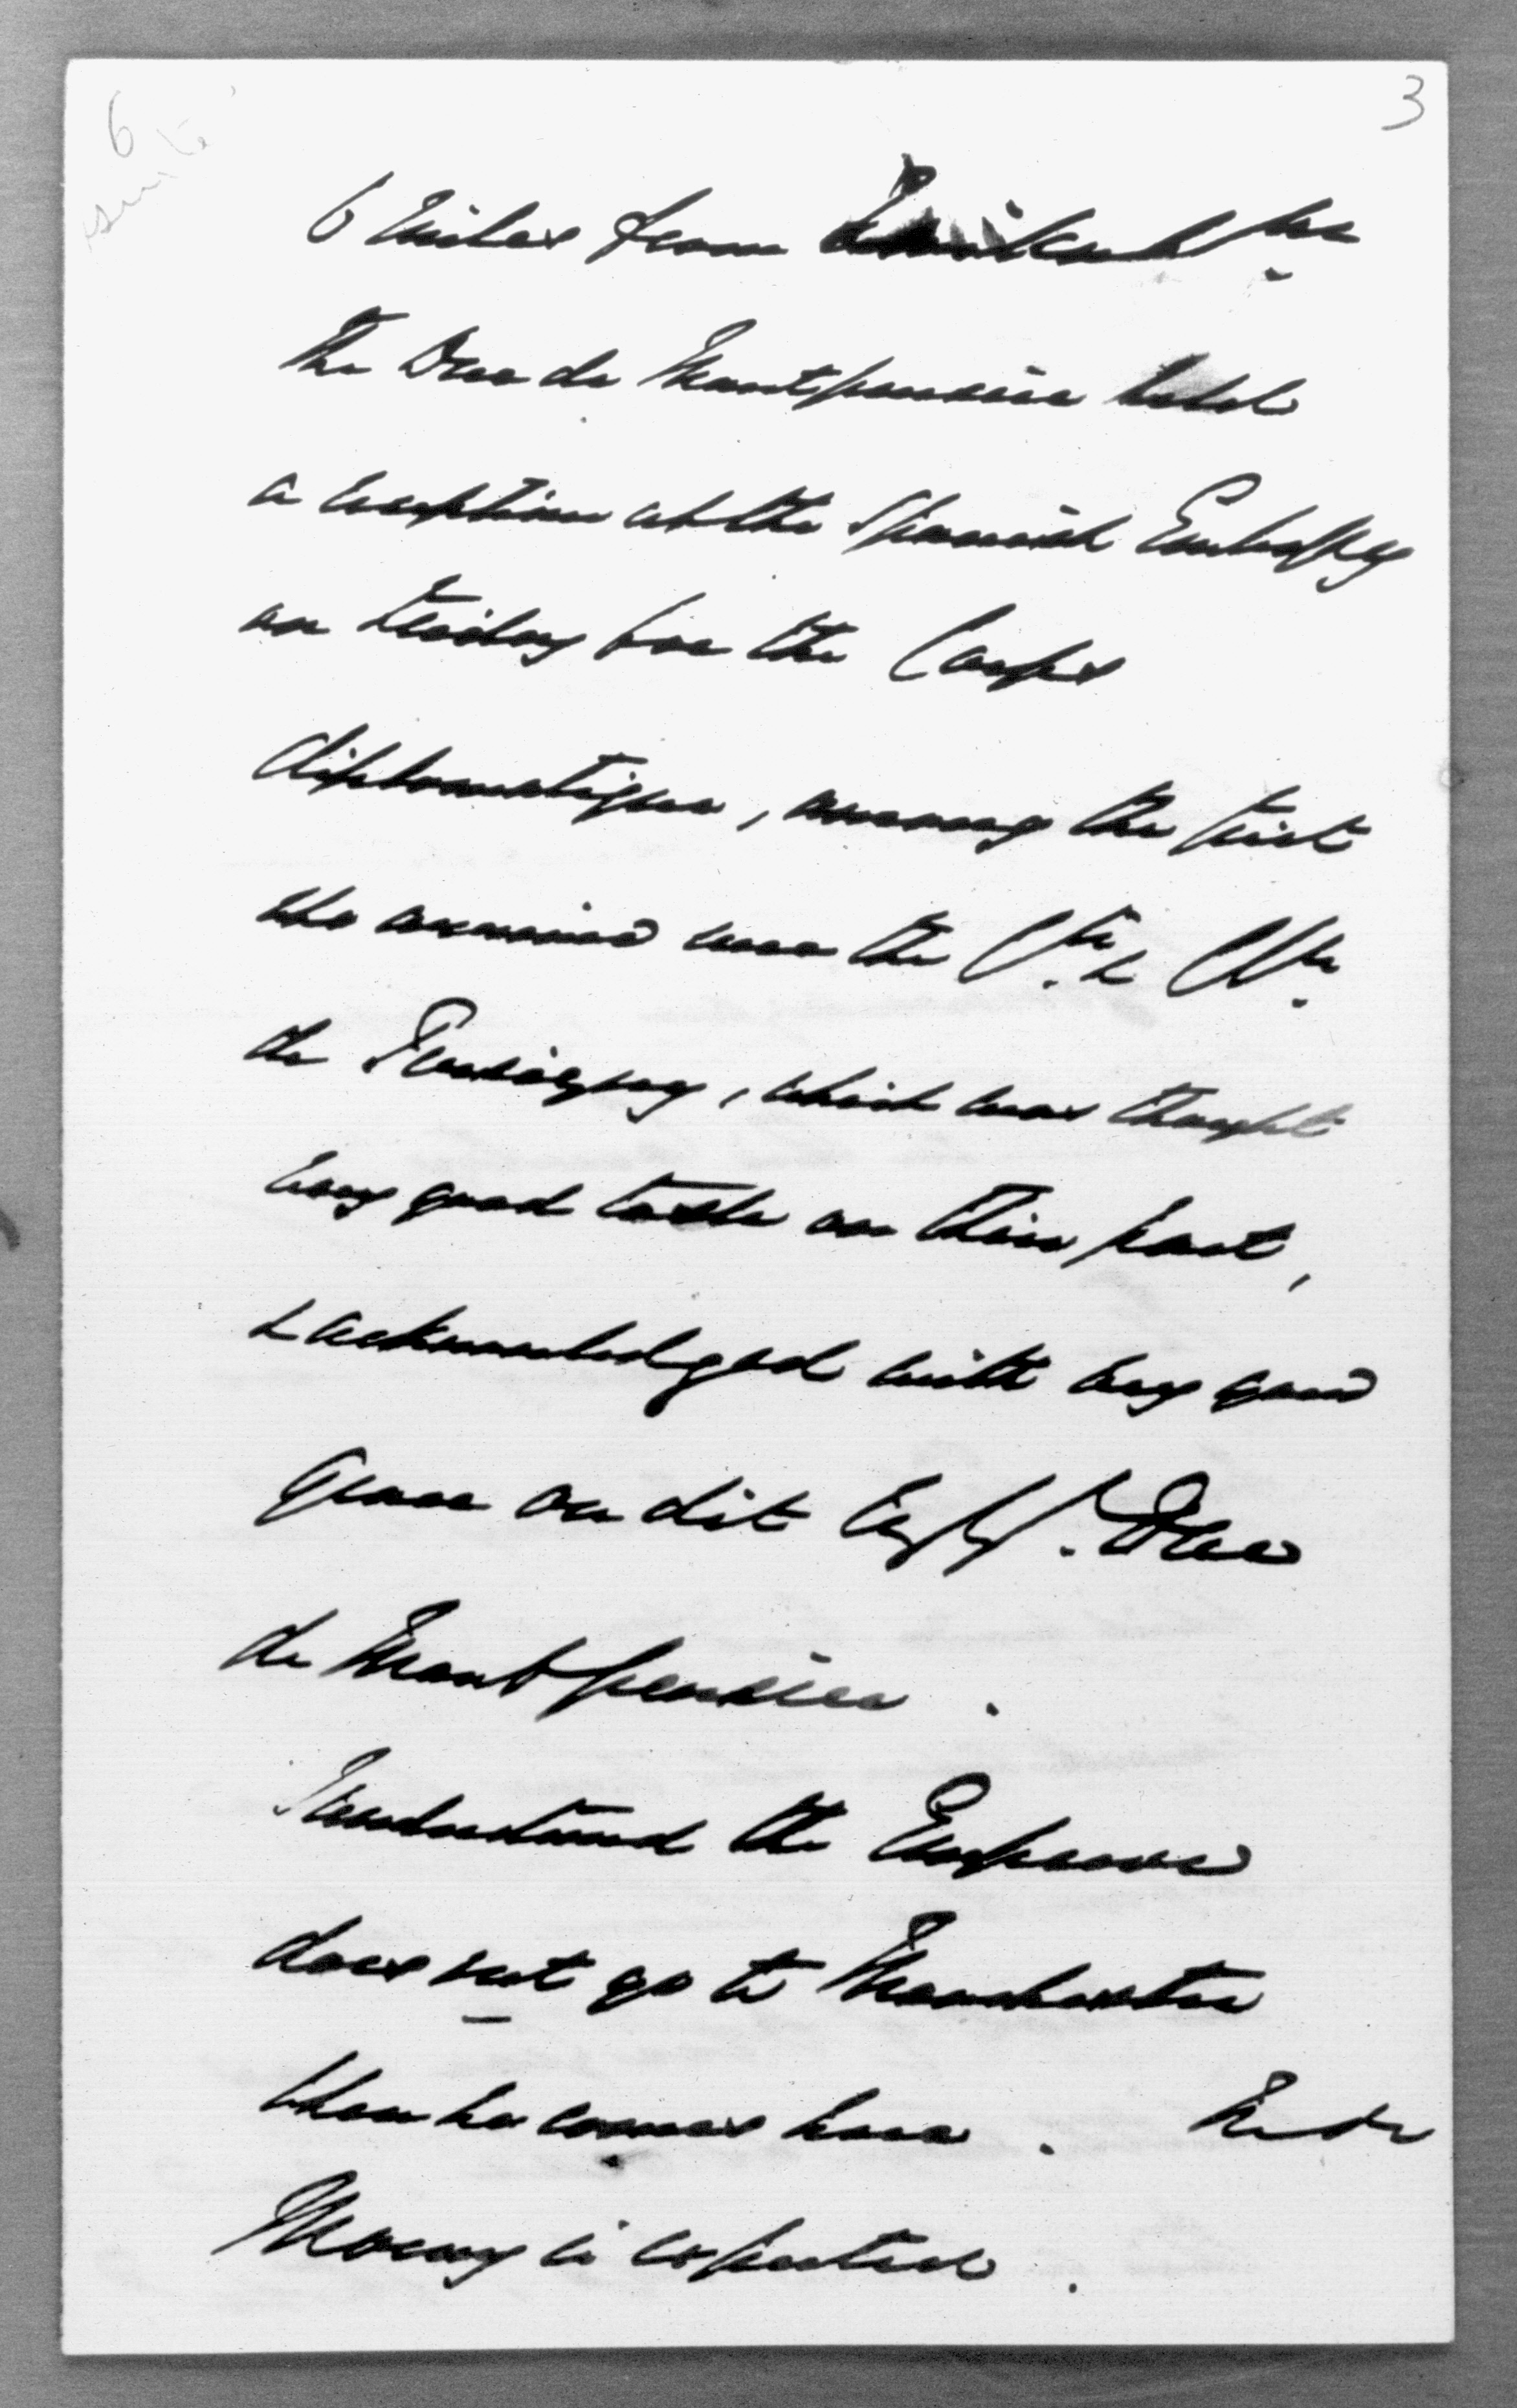 3
6
suite
6 Miles from
The Duc de Montpensier held
a reception at the Spanish Embassy
on friday for the Corps
diplomatique, among the first
who arrived was the Cte. & Ctsse.
de Persigny, which was thought
very good taste on their part,
& acknowledged with very good
grace on dit by ye. Duc
de Montpensier.
I understand the Emperor
does not go to Manchester
when he comes here. M. de
Morny is expected.